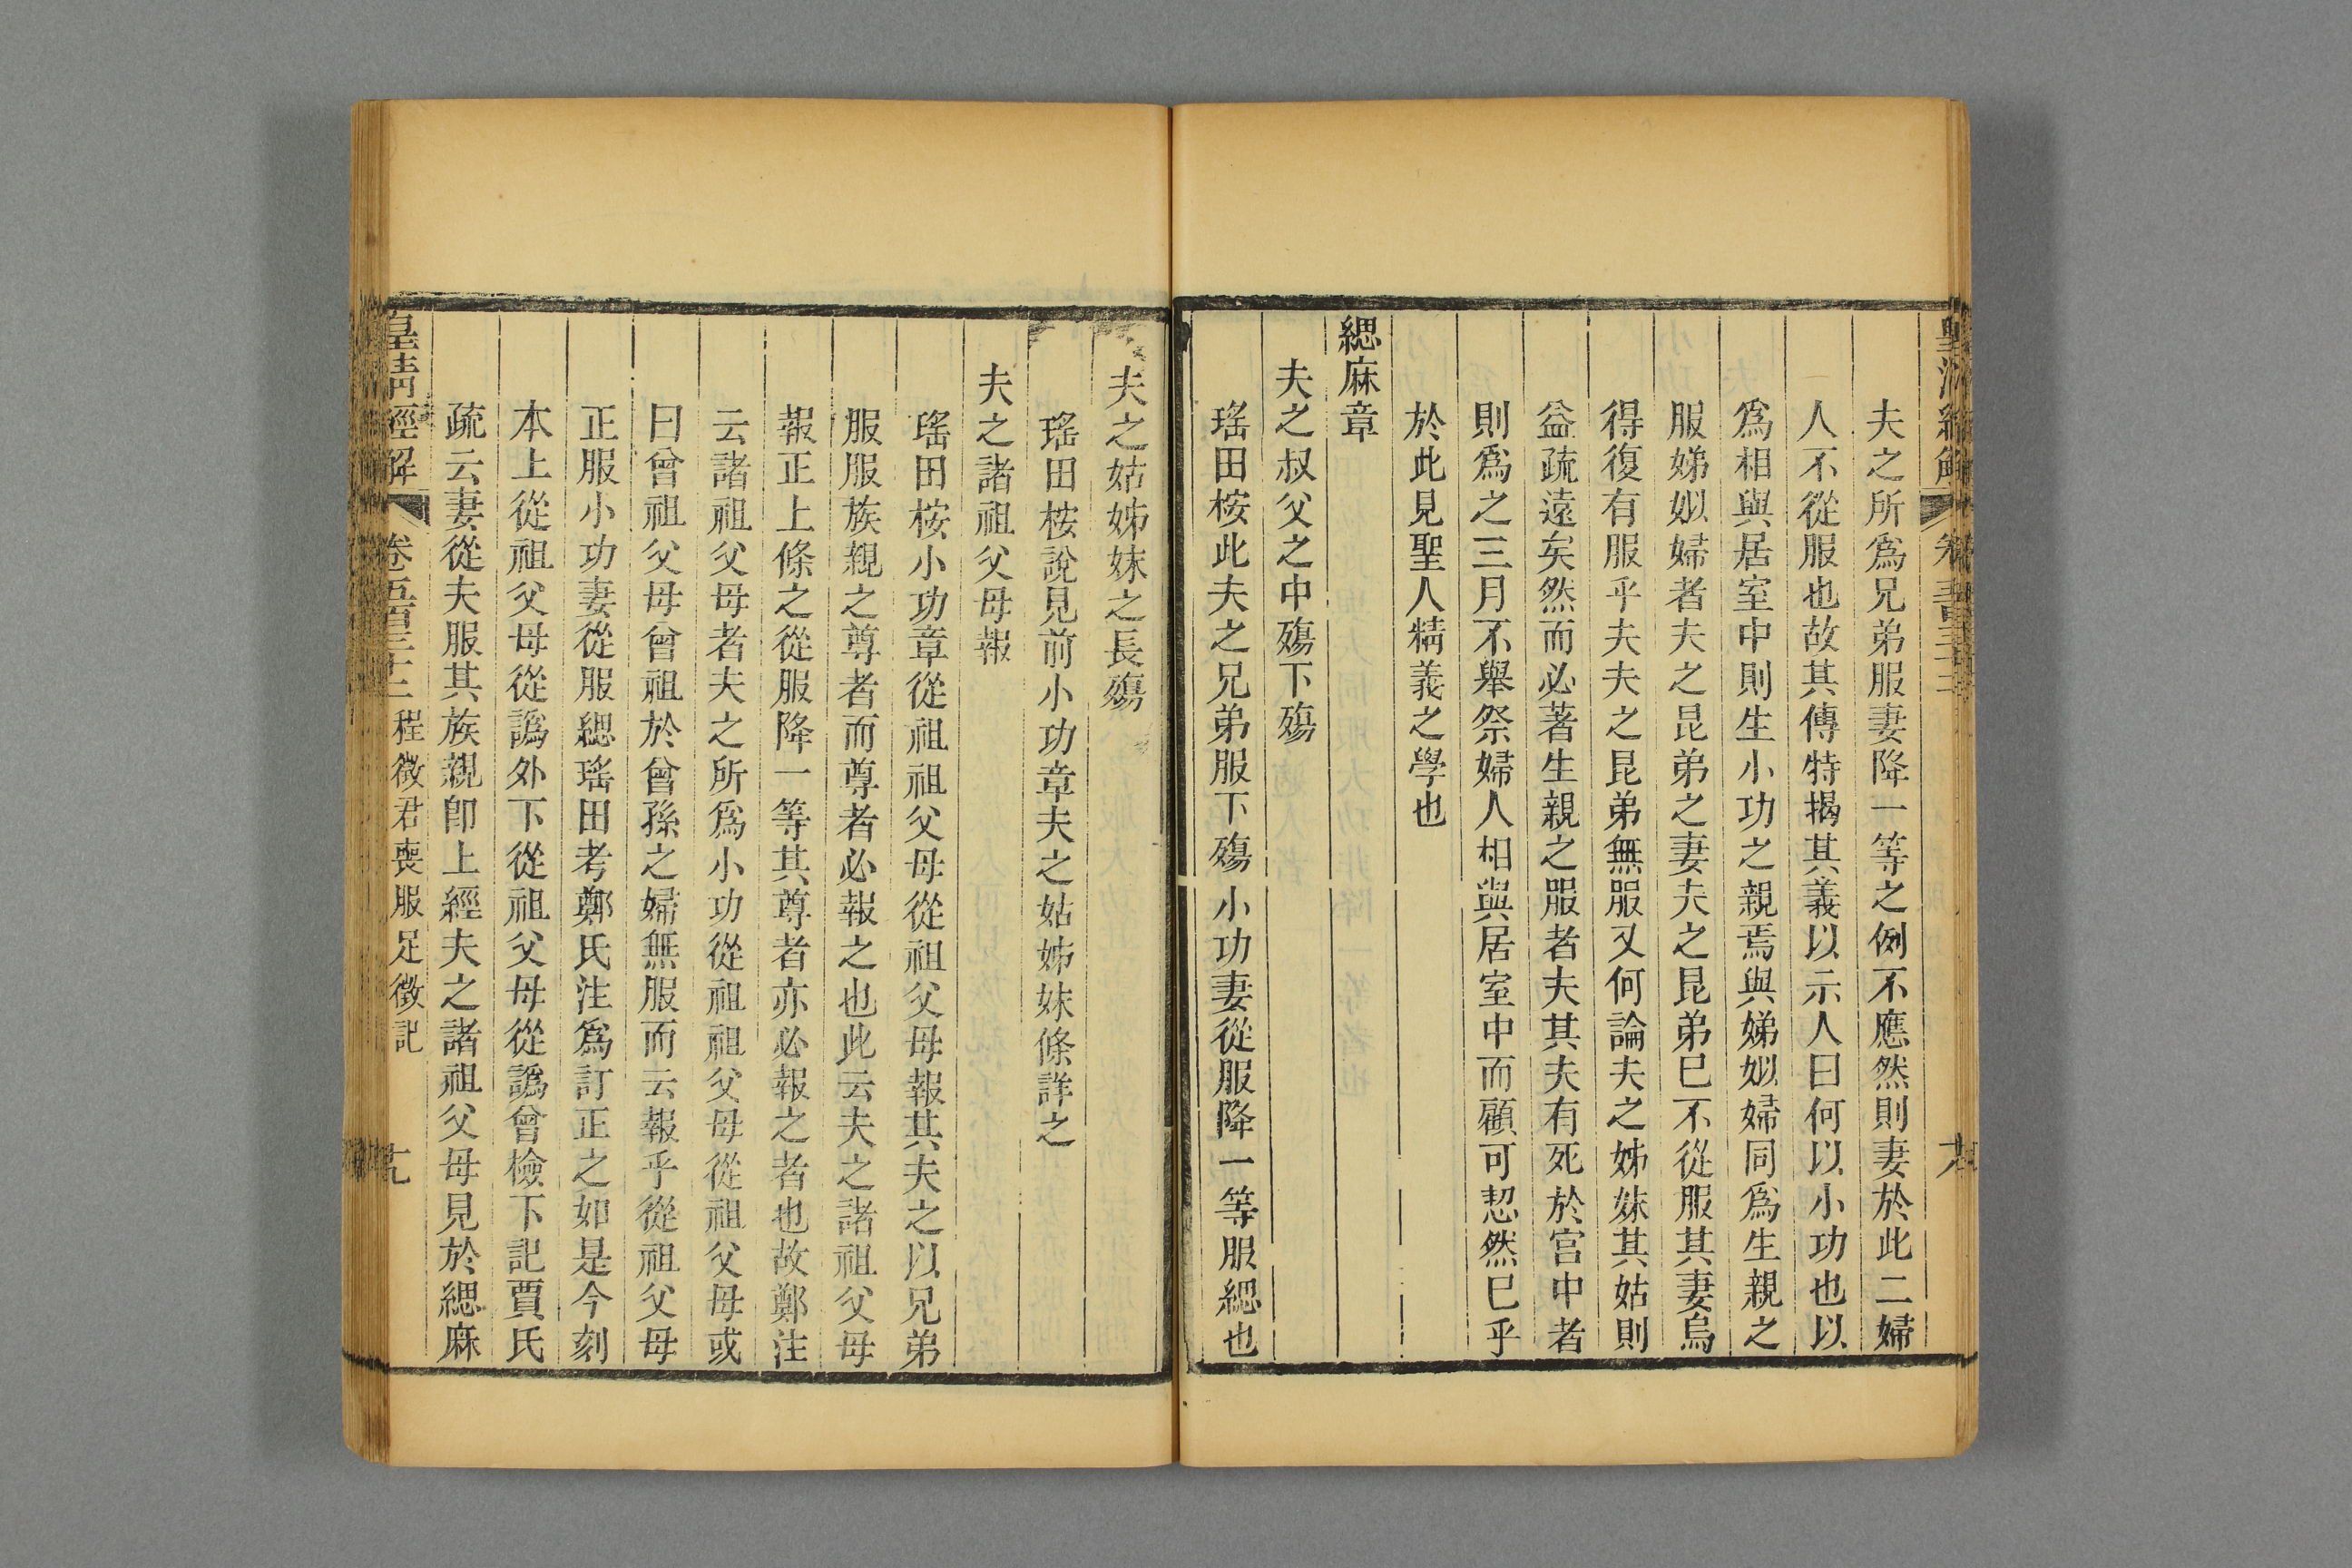 夫之所爲兄弟服妻降一等之例不應然則妻於此二婦
人不從服也故其傳特揭其義以示人曰何以小功也以
爲相與居室中則生小功之親焉與娣姒婦同爲生親之
服娣姒婦者夫之昆弟之妻夫之昆弟巳不從服其妻烏
得復有服乎夫夫之昆弟無服又何論夫之姊妹其姑則
益疏遠矣然而必著生親之服者夫其夫有死於宫中者
則爲之三月不舉祭婦人相與居室中而顧可恝然巳乎
於此見聖人精義之學也
緦麻章
夫之叔父之中殤下殤
瑤田桉此夫之兄弟服下殤小功妻從服降一等服緦也
夫之姑姊妹之長殤
瑤田桉說見前小功章夫之姑姊妹條詳之
夫之諸祖父母報
瑤田桉小功章從祖祖父母從祖父母報其夫之以兄弟
服服族親之尊者而尊者必報之也此云夫之諸祖父母
報正上條之從服降一等其尊者亦必報之者也故鄭注
云諸祖父母者夫之所爲小功從祖祖父母從祖父母或
曰曾祖父母曾祖於曾孫之婦無服而云報乎從祖父母
正服小功妻從服緦瑤田考鄭氏注爲訂正之如是今刻
本上從祖父母從譌外下從祖父母從譌曾檢下記賈氏
疏云妻從夫服其族親卽上經夫之諸祖父母見於緦麻
皇清經解 卷五百三十二 程徵君喪服足徵記 十九